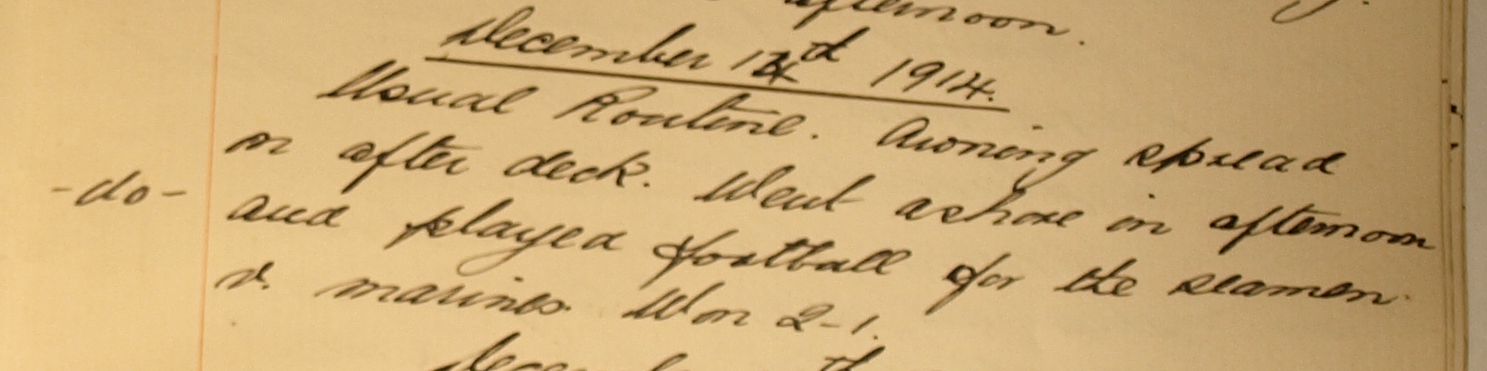 afternoon.
December 14d 1914.
Usual Routine. Awning spread
on after deck. Went ashore in afternoon
-do-
and played football for the seamen
v. marines. Won 2-1.